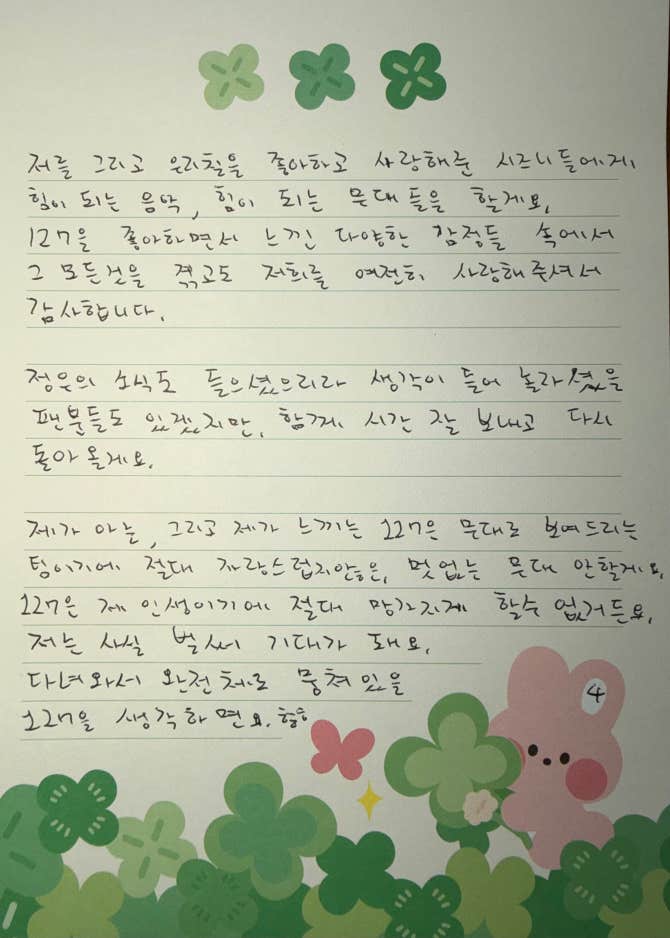 저를 그리고 우리칠을 좋아하고 사랑해준 시즈니들에게
힘이 되는 음악, 힘이 되는 무대들을 할게요.
127을 좋아하면서 느낀 다양한 감정들 속에서
그 모든것을 겪고도 저희를 여전히 사랑해주셔서
감사합니다.
정우의 소식도 들으셨으리라 생각이 들어 놀라셨을
팬분들도 있겠지만, 함께 시간 잘 보내고 다시
돌아올게요.
제가 아는, 그리고 제가 느끼는 127은 무대로 보여드리는
팀이기에 절대 자랑스럽지않은, 멋없는 무대 안할게요.
127은 제 인생이기에 절대 망가지게 할수 없거든요.
저는 사실 벌써 기대가 돼요.
다녀와서 완전체로 뭉쳐있을
127을 생각하면요. 힣
4